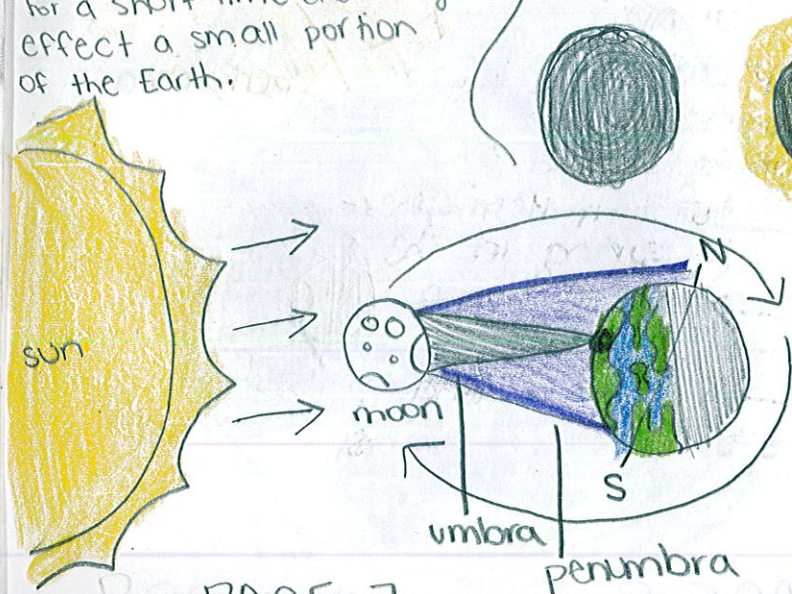 for a short time and
effect a small portion
of the Earth.
N
sun
moon
S
umbra
penumbra
PAGE 7